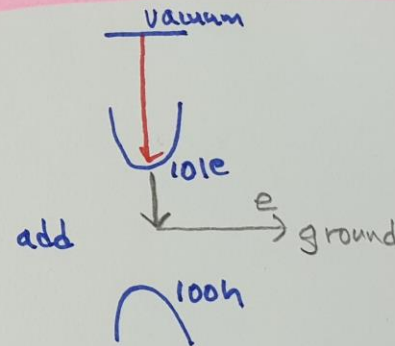 vacuum
101e
e
add
ground
100h